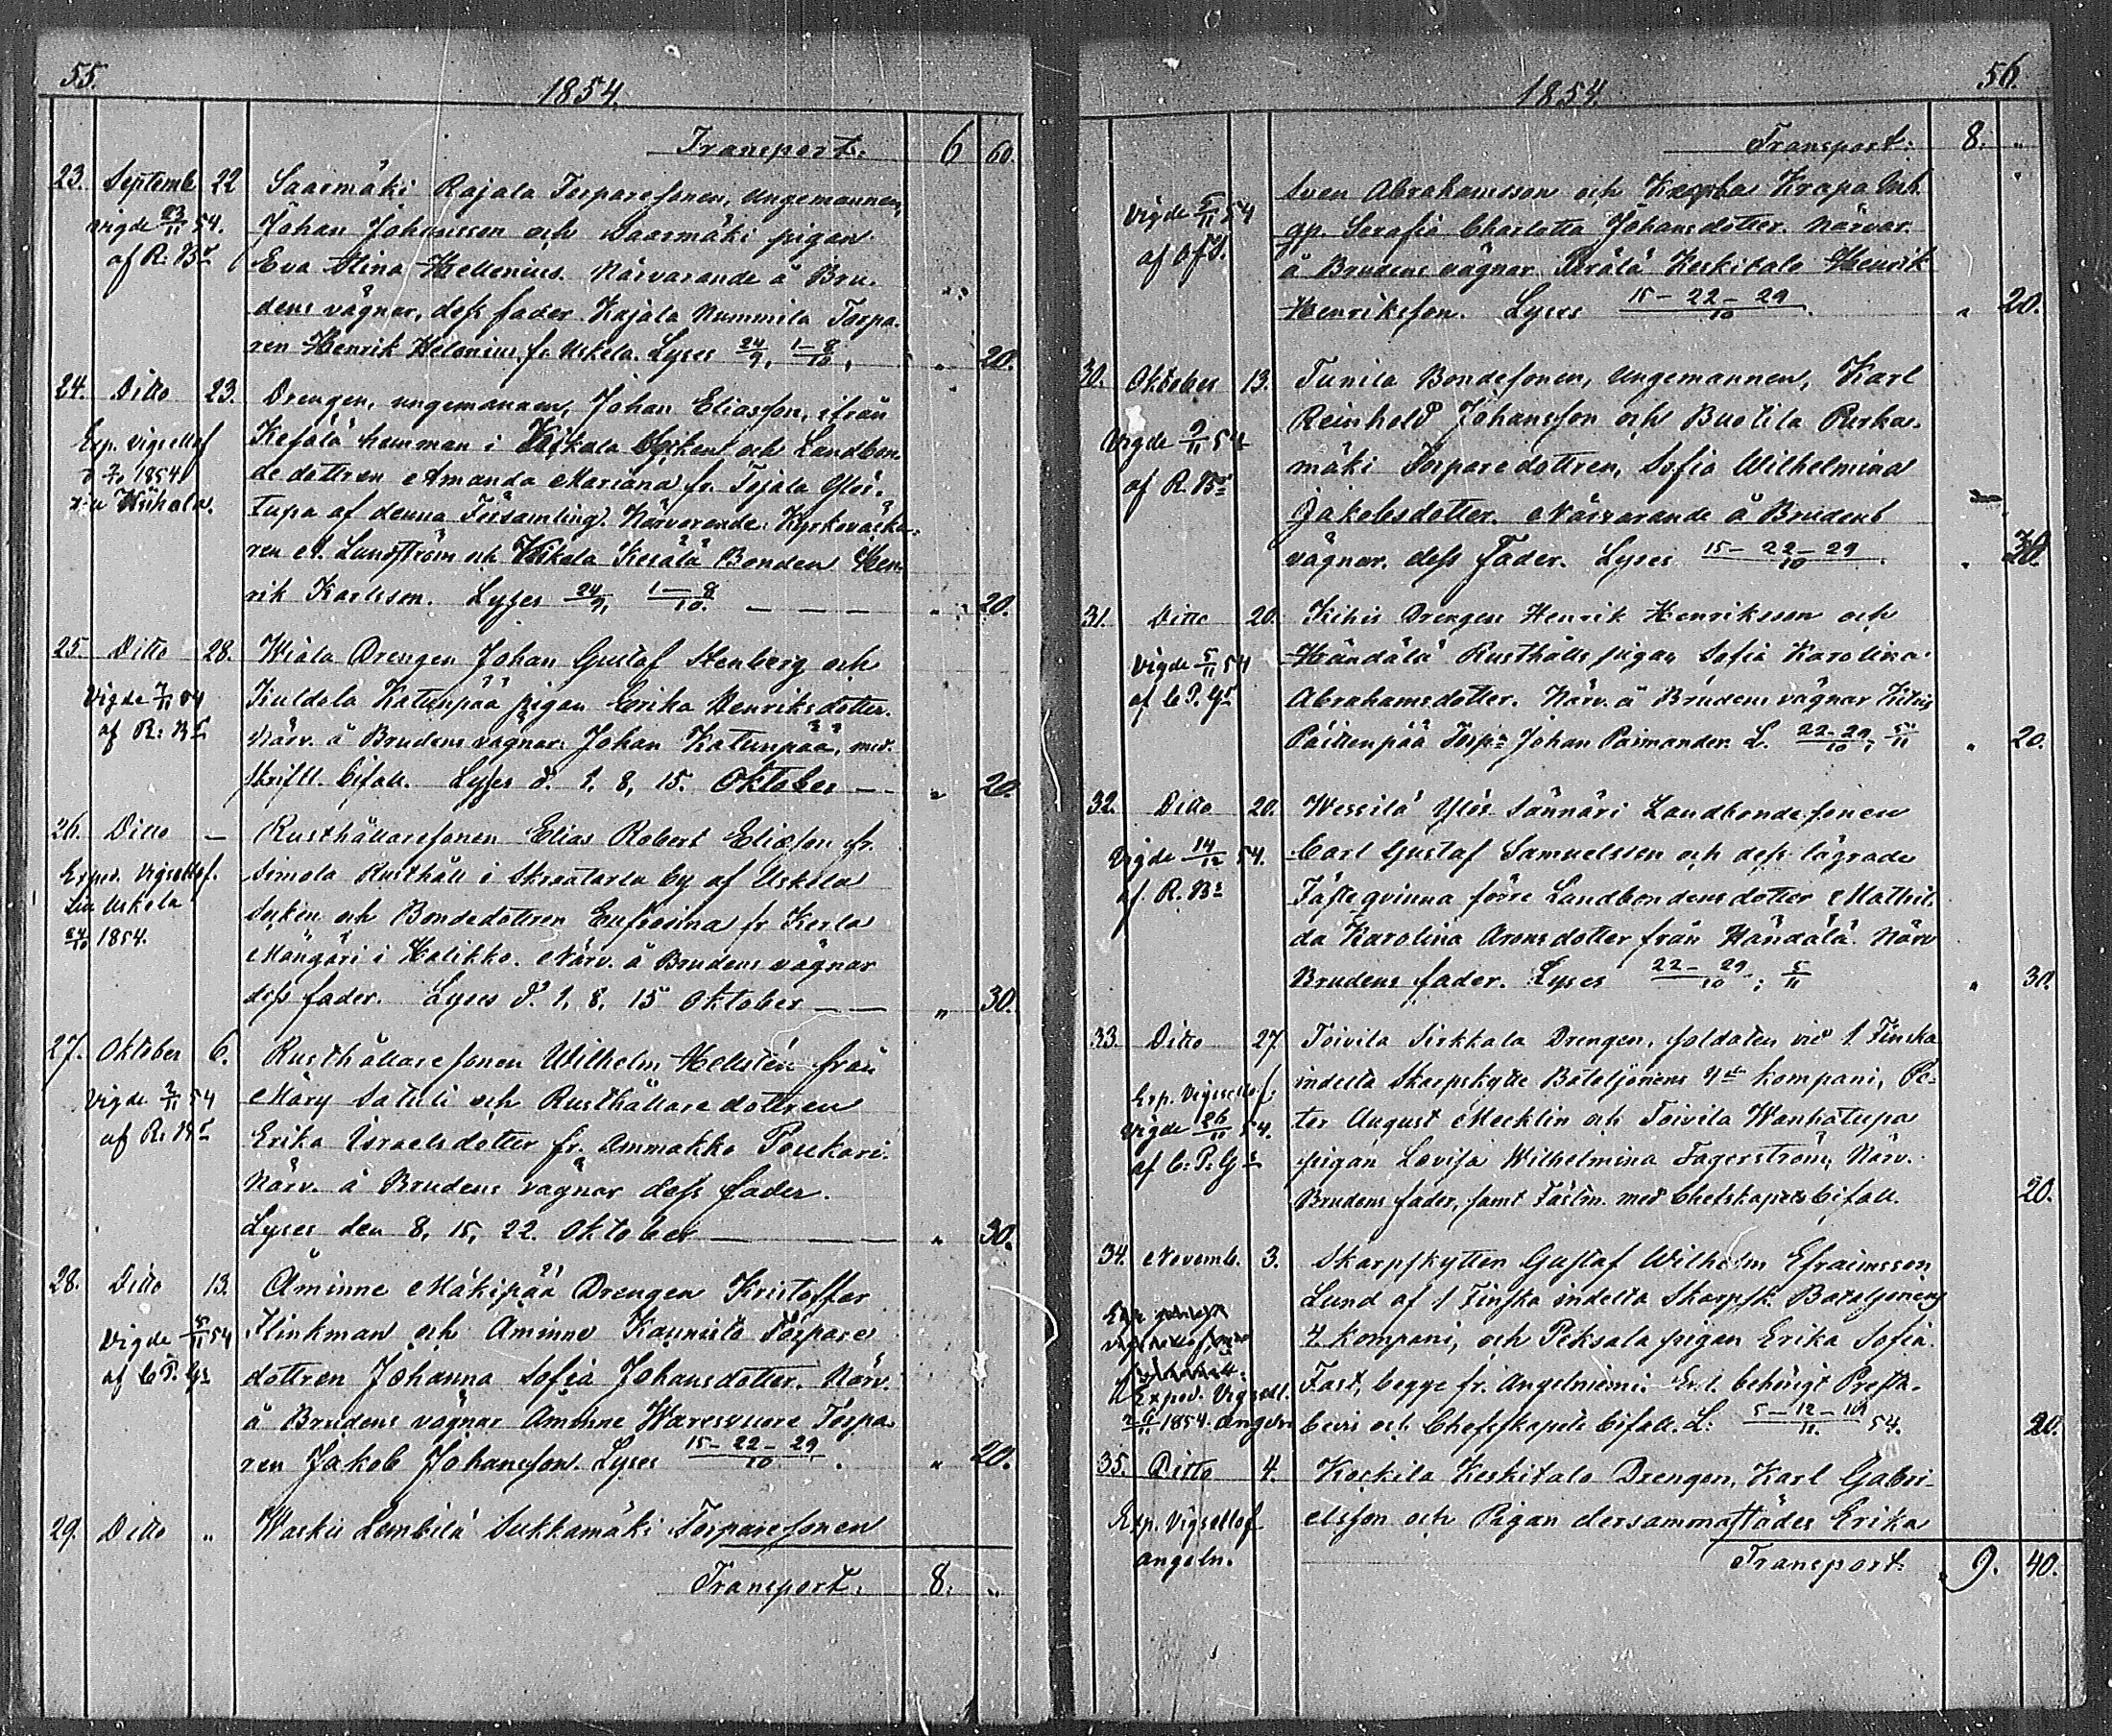 55.
1854.
Transport. 6 60.
23. Septemb 22 Saarmäki Rajala Torparesonen, ungemannen,
vigde 23/11 54. Johan Johansson och Saarmäki pigan
af R. Br Eva Stina Hellenius. Närvarande å Bru-
dens vägnar, dess fader Kajala Nummila Torpa-
ren Henrik Helenius fr. Uskela. Lyses 24/9, 1–8/10. „ 20.
24. Ditto 23. Drengen, ungemannen, Johan Eliasson, ifrån
Exp. vigsellof Kesälä hemman i Kiikala Socken och Landbon-
1854 dedottren Amanda Mariana fr. Tojala Ylös-
t. Kiikala. tupa af denna Församling. Närvarande: Kyrkoväkta-
ren A. Lundström och Kiikala Kesälä Bonden Hen-
rik Karlsson. Lyses 24/9, 1–8/10. „ 20.
25. Ditto 28. Wiala Drengen Johan Gustaf Stenberg och
Vigde 7/11 54 Kuldela Katunpää pigan Erika Henriksdotter.
af R. Br Närv. å Brudens vägnar: Johan Katunpää, med
skriftl. bifall. Lyses d. 1, 8, 15. Oktober — „ 20.
26. Ditto — Rusthållaresonen Elias Robert Eliasson fr.
Exped. Vigsellof. Simola Rusthåll i Skraatarla by af Uskela
till Uskela Socken och Bondedottren Eufrosina fr. Kerla
24/10 1854. Mängäri i Halikko. Närv. å Brudens vägnar
dess fader. Lyses d. 1, 8, 15 Oktober — — „ 30.
27. Oktober 6. Rusthållaresonen Wilhelm Hellstén från
Vigde 2/11 54 Märy Satuli och Rusthållaredottren
af R. Br Erika Israelsdotter fr. Ammakko Pouckari.
Närv. å Brudens vägnar dess fader.
Lyses den 8, 15, 22. Oktober — — „ 30.
28. Ditto 13. Åminne Mäkipää Drengen Kristoffer
Vigde 5/11 54 Klinkman och Åminne Kaunisto Torpare
af C. P. Gr dottren Johanna Sofia Johansdotter. Närv.
å Brudens vägnar Åminne Waresvuore Torpa-
ren Jakob Johansson. Lyses 15–22–29/10. „ 20.
29. Ditto „ Waskis Lembilä Sukkamäki Torparesonen
Transport. 8. „
56.
1854.
Transport: 8. „
Sven Abrahamsson och Krapa Inh.
Vigde 5/11 54 gp. Serafia Charlotta Johansdotter. Närvar.
af å Brudens vägnar Perälä Keskitalo Henrik
Henriksson. Lyses 15–22–29/10. „ 20.
30. Oktober 13. Tunila Bondesonen, Ungemannen, Karl
Vigde 9/11 54 Reinhold Johansson och Buotila Purka-
af R. Br mäki Torparedottren, Sofia Wilhelmina
Jakobsdotter. Närvarande å Brudens
vägnar. dess Fader. Lyses 15–22–29/10. „ 30.
31. Ditto 20. Kihis Drengen Henrik Henriksson och
Vigde 5/11 54 Händälä Rusthålls pigan Sofia Karolina
af C. P. Gr Abrahamsdotter. Närv. å Brudens vägnar Kihis
Päitenpää Torpn Johan Paimander. L. 22–29/10; 5/11 „ 20.
32. Ditto 20. Wessilä Ylös Sännäri Landbondesonen
Vigde 14/12 54. Carl Gustaf Samuelsson och dess lägrade
af R. Br Fästeqvinna förre Landbondens dotter Mathil-
da Karolina Aronsdotter från Händälä. Närv
Brudens fader. Lyses 22–29/10; 5/11 „ 30.
33. Ditto 27 Toivila Sirkkala Drengen, soldaten vid 1. Finska
Exp. Vigsellof indelta Skarpskytte Bataljonens 4de kompani, Pe-
vigde 26/11 54. ter August Mecklin och Toivila Wanhatupa
af C. P. Gr pigan Lovisa Wilhelmina Fagerström, Närv.
Brudens fader, samt Fästm. med Chefskapets bifall. 20.
34. Novemb. 3. Skarpskytten Gustaf Wilhelm Efraimsson
Lund af 1 Finska indelta Skarpsk. Bataljonens
4 kompani, och Peksala pigan Erika Sofia
Exped. Vigsedl. Fast, begge fr. Angelniemi. Enl. behörigt Prest-
1854. Angeln bevis och Chefsskapets bifall. L: 5–12–19/11 54. 20.
35. Ditto 4. Koskila Keskitalo Drengen, Karl Gabri-
Exp. Vigsellof elsson och Pigan dersammastädes Erika
Angeln.
Transport. 9. 40.